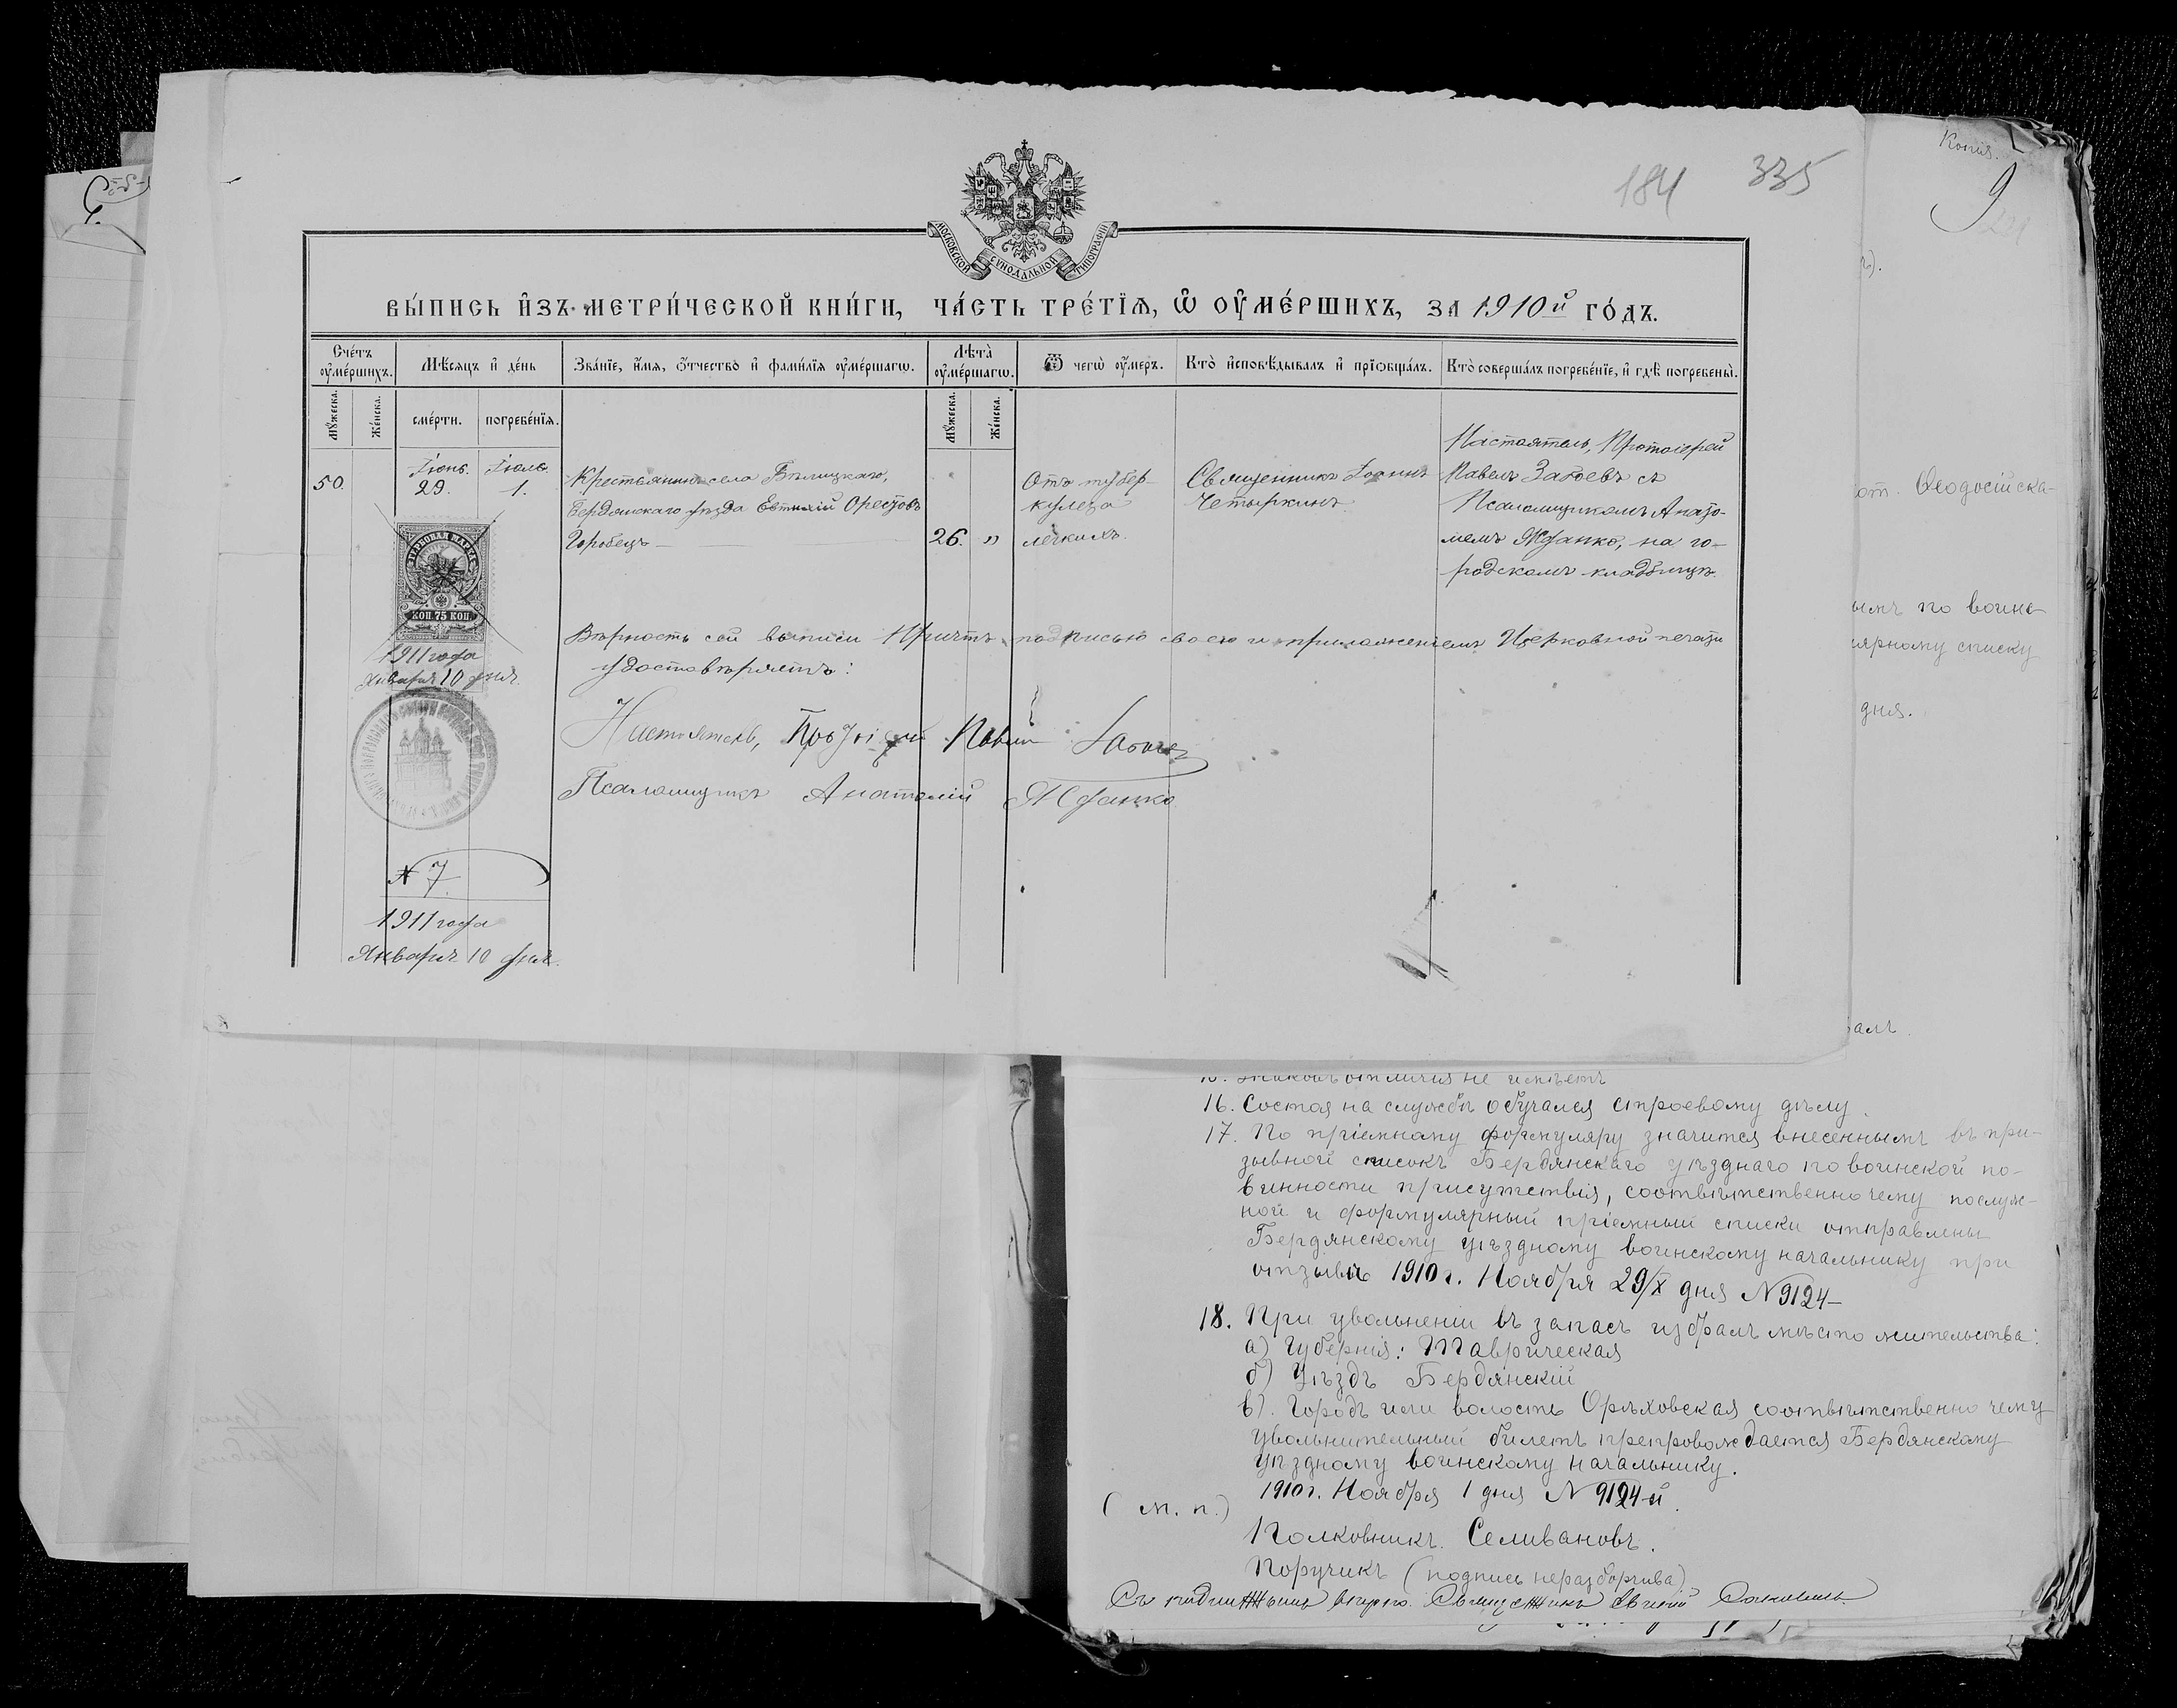 Копія.
184 335
9
МОСКОВСКОЙ СѴНОДАЛЬНОЙ ТИПОГРАФІИ
ВЫ́ПИСЬ И҆ЗЪ МЕТРИ́ЧЕСКОЙ КНИ́ГИ, ЧА́СТЬ ТРЕ́ТІЯ, Ѽ ОУ҆МЕ́РШИХЪ, ЗА 1910й ГО́ДЪ.
Сче́тъ оу҆ме́ршихъ.
Мѣ́сяцъ и҆ де́нь
Зва́ніе, и҆́мя, ѻ҆́тчество и҆ фами́лія оу҆ме́ршагѡ.
Лѣ́та оу҆ме́ршагѡ.
Ѿ чегѡ̀ оу҆́меръ.
Кто̀ и҆сповѣ́дывалъ и҆ прїѡбща́лъ.
Кто̀ соверша́лъ погребе́ніе, и҆ гдѣ̀ погребены̀.
Му́жеска. Же́нска. сме́рти. погребе́нія. Му́жеска. Же́нска.
50.
Іюнь. 29.
Іюль. 1.
Крестьянинъ села Бѣлицкаго,
Бердянскаго уѣзда Евтихій Орестовъ
Горобецъ
26. „
Отъ тубер-
кулеза
легкихъ.
Священникъ Іоаннъ
Четыркинъ.
Настоятель, Протоіерей
Павелъ Загоевъ съ
Псаломщикомъ Анато-
ліемъ Жданко, на го-
родскомъ кладбищѣ.
ГЕРБОВАЯ МАРКА
КОП. 75 КОП.
1911 года
Января 10 дня.
Вѣрность сей выписи Причтъ подписью своею и приложеніемъ Церковной печати
удостовѣряетъ:
Настоятель, Протоіерей Павелъ
Псаломщикъ Анатолій Жданко
№ 7
1911 года
Января 10 дня.
от. Ѳеодосійска-
ымъ по воинс-
улярному списку
дня.
алъ.
знаковъ отличія не имѣетъ
16. Состоя на службѣ обучался строевому дѣлу.
17. По пріемному формуляру значится внесеннымъ въ при-
зывной списокъ Бердянскаго уѣзднаго по воинской по-
винности присутствія, соотвѣтственно чему послуж-
ной и формулярный пріемный списки отправлены
Бердянскому уѣздному воинскому начальнику при
отзывѣ 1910 г. Ноября 29/X дня N 9124-
18. При увольненіи въ запасъ избралъ мѣсто жительства:
а) Губернія: Таврическая
б) Уѣздъ Бердянскій
в). Городъ или волость Орѣховская соотвѣтственно чему
увольнительный билетъ препровождается Бердянскому
уѣздному воинскому начальнику.
1910 г. Ноября 1 дня N 9124-й.
(м. п.)
Полковникъ Селивановъ.
Поручикъ (подпись неразборчива).
Съ подлиннымъ вѣрно. Священникъ